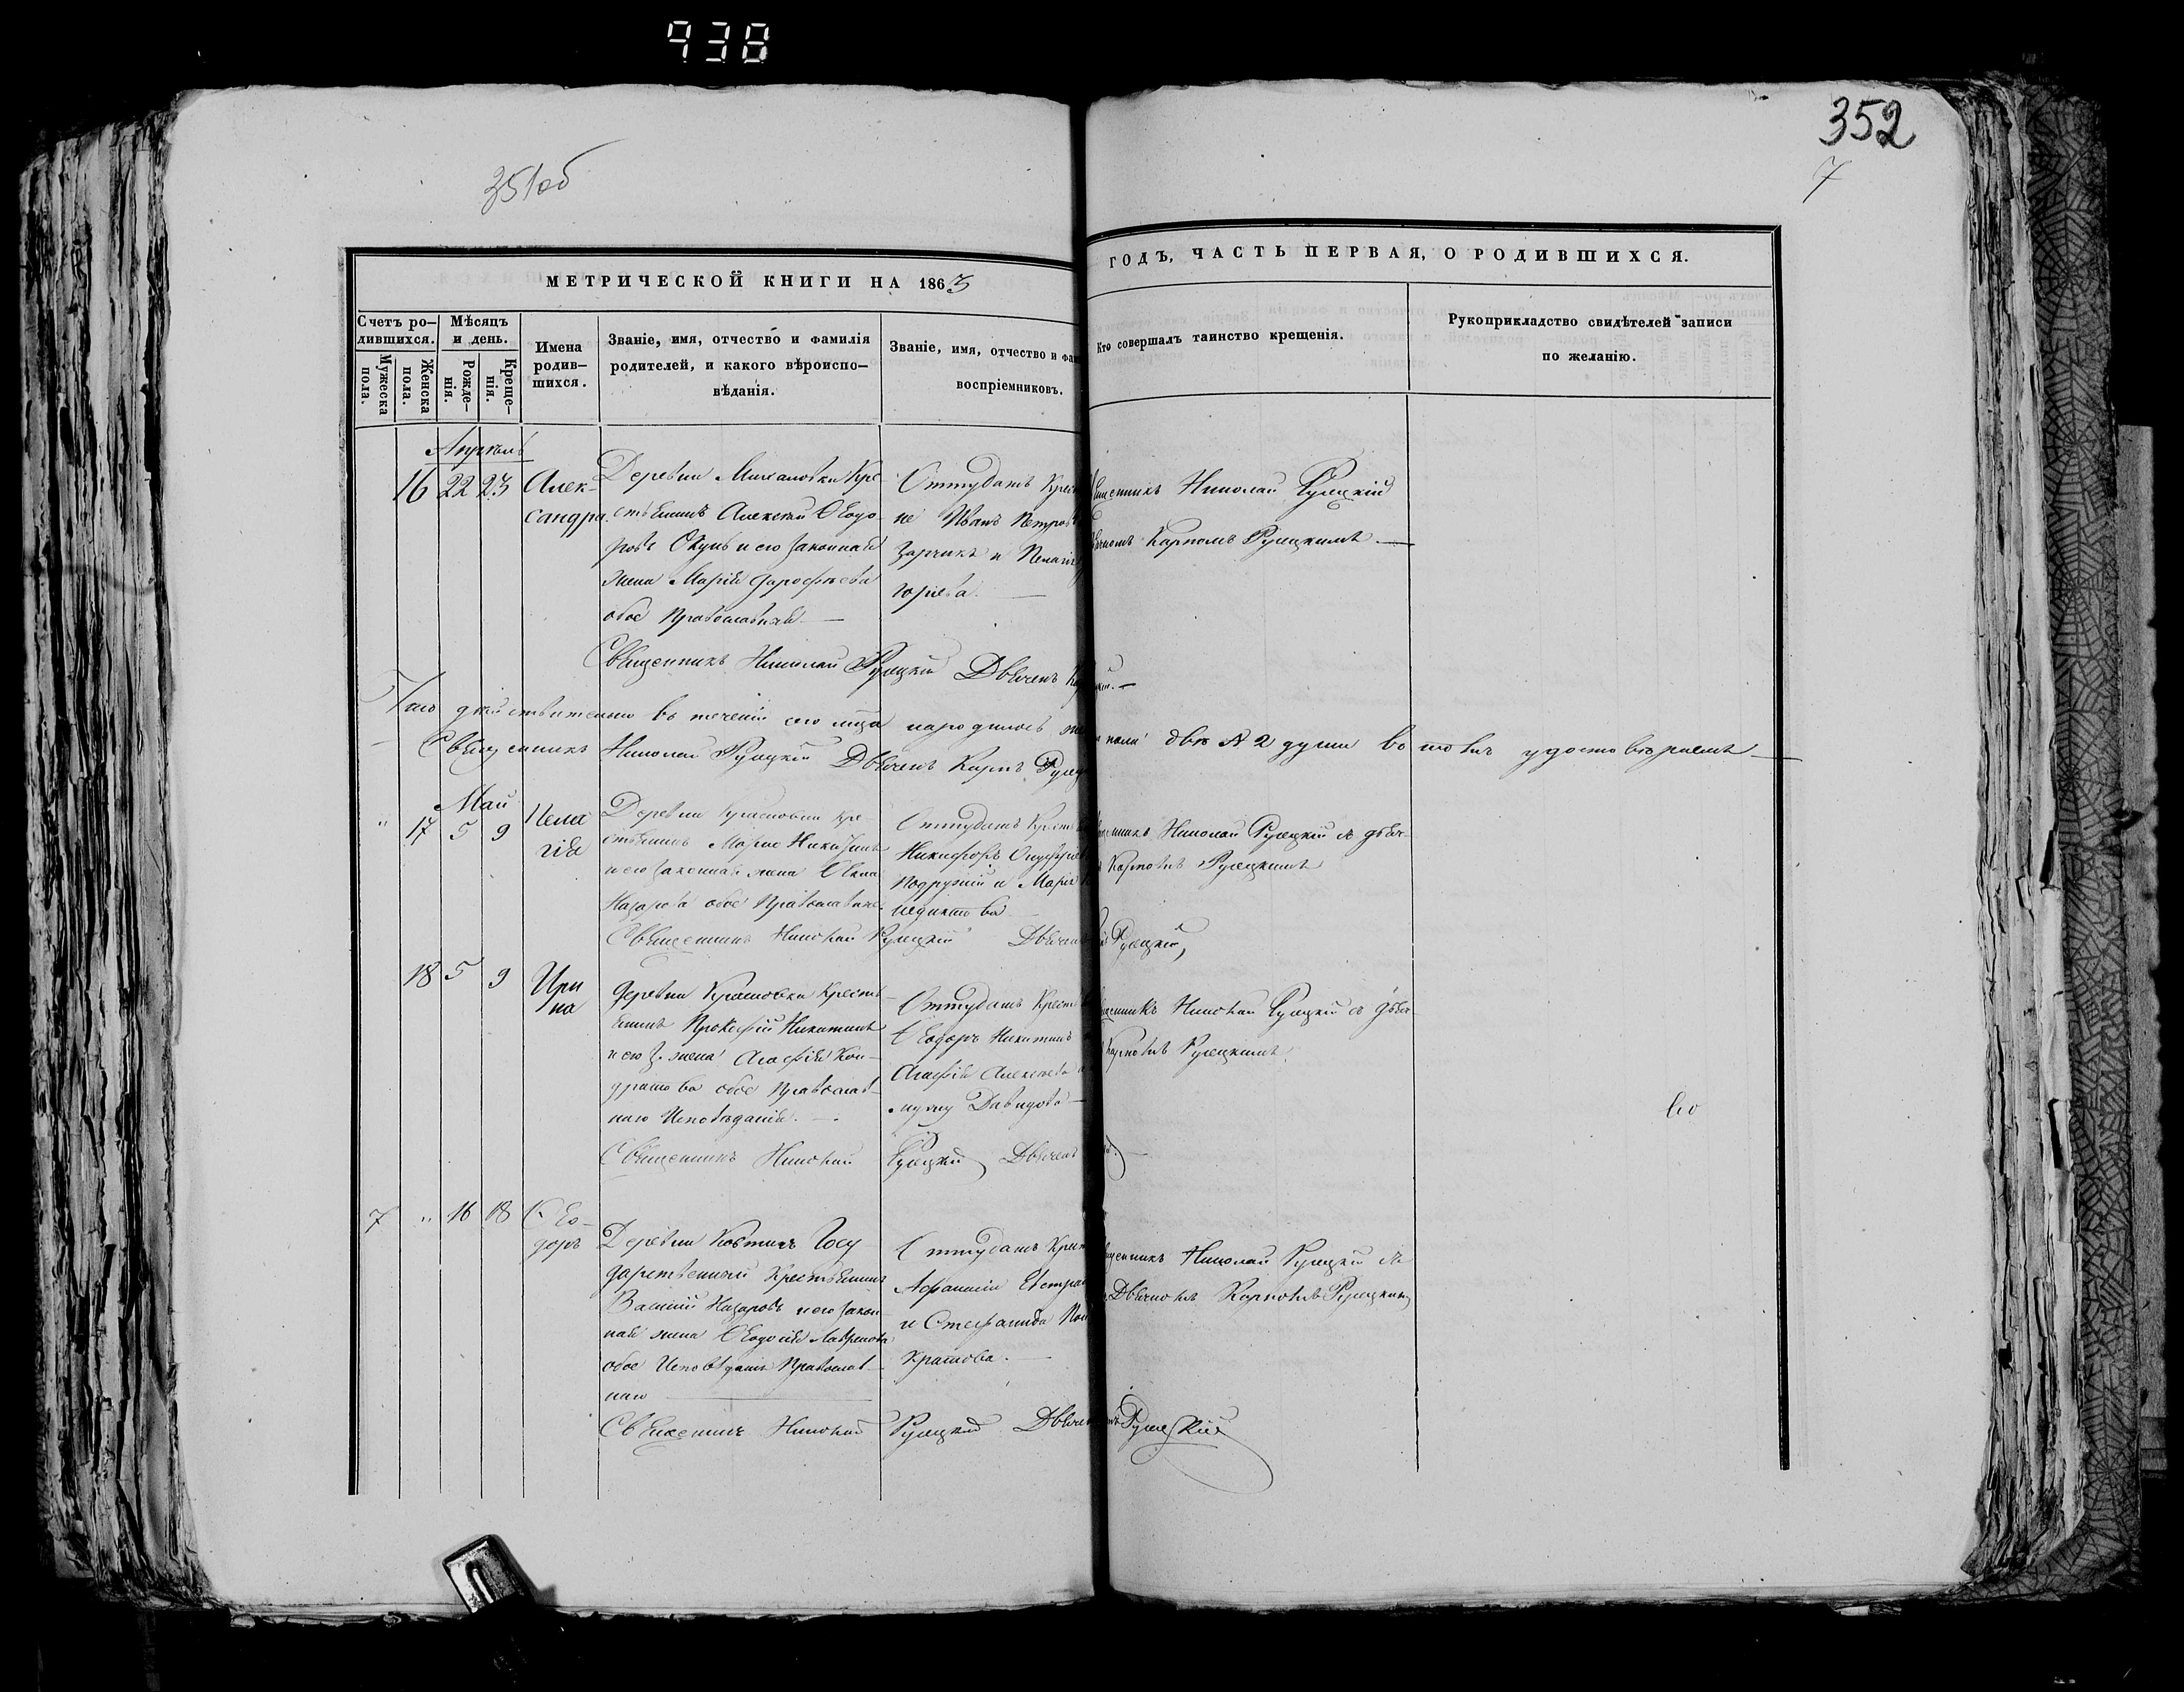 938
352
7
351об
МЕТРИЧЕСКОЙ КНИГИ НА 1863
ГОДЪ, ЧАСТЬ ПЕРВАЯ, О РОДИВШИХСЯ.
Счетъ ро-
дившихся.
Мужеска
пола.
Женска
пола.
Мѣсяцъ
и день.
Рожде-
нія.
Креще-
нія.
Имена
родив-
шихся.
Званіе, имя, отчество и фамилія
родителей, и какого вѣроиспо-
вѣданія.
Званіе, имя, отчество и фам
воспріемниковъ.
Кто совершалъ таинство крещенія.
Рукоприкладство свидѣтелей записи
по желанію.
Апрѣль
16 22 23 Алек-
сандра.
Деревни Михаловки Кре-
стьянинъ Алексѣй Ѳеодо-
ровъ Окунь и его законная
жена Марія Дорофѣева
обое Православныи
Оттудажъ Крест
не Иванъ Петров
и Пелагія
Священникъ Николай Рулецкій
Карпомъ Рулецкимъ
Священникъ Николай Рулецкій Дьячекъ
Что дѣйствительно въ теченіи сего мца народилось
пола двѣ N 2 души въ томъ удостовѣряемъ
Священникъ Николай Рулецкій Дьячекъ Карпъ Рулец
Май
" 17 5 9 Пела
гія
Деревни
крестьянинъ Никитинъ
и его законная жена
Назарова обое Православные
Оттудажъ Крест
Никифоръ Онуфріев
и Марія
Николай Рулецкій съ дьяч
Карпомъ Рулецкимъ
Священникъ Николай Рулецкій Дьячекъ
Рулецкій
18 5 9 Ири
на
Деревни Крест
янинъ Прокофій Никитинъ
и его з. жена Агафія Кон-
дратова обое Православ-
наго Исповѣданія.
Оттудажъ Крест
Ѳеодоръ Никитинъ
Агафія Алексѣева
Давидова
Николай Рулецкій съ дьяч
Карпомъ Рулецкимъ
Священникъ Николай Рулецкій Дьячекъ
7 " 16 18 Ѳео-
доръ
Деревни Госу
дарственный Крестьянинъ
Василій Назаровъ и его закон
ная жена Ѳеодосія Лавренова
обое Исповѣданія Православ-
наго
Оттудажъ Крест
Афанасій Евстра
и Стефанида
кратова.
Николай Рулецкій съ
Дьячкомъ Карпомъ Рулецкимъ
Священникъ Николай Рулецкій Дьячекъ
Рулецкій